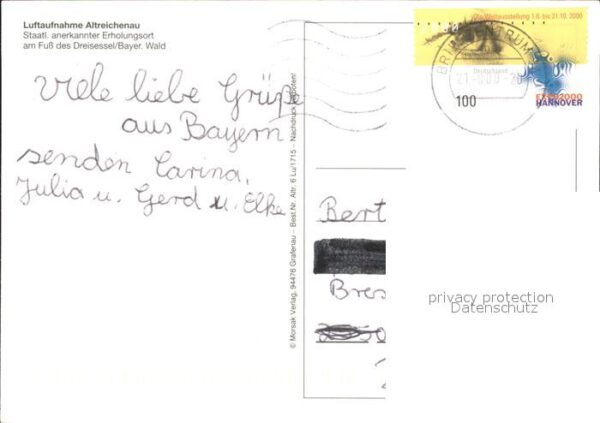 Luftaufnahme Altreichenau
Staatl. anerkannter Erholungsort
am Fuß des Dreisessel/Bayer. Wald
Viele liebe Grüße
aus Bayern
senden Carina,
Julia u. Gerd u. Elke
© Morsak Verlag, 94476 Grafenau – Best.Nr. Altr. 6 Lu/1715 – Nachdruck verboten!
Weltausstellung 1.6. bis 31.10. 2000
BRIEFZENTRUM
Deutschland
100
EXPO2000
HANNOVER
Bert
Bres
privacy protection
Datenschutz